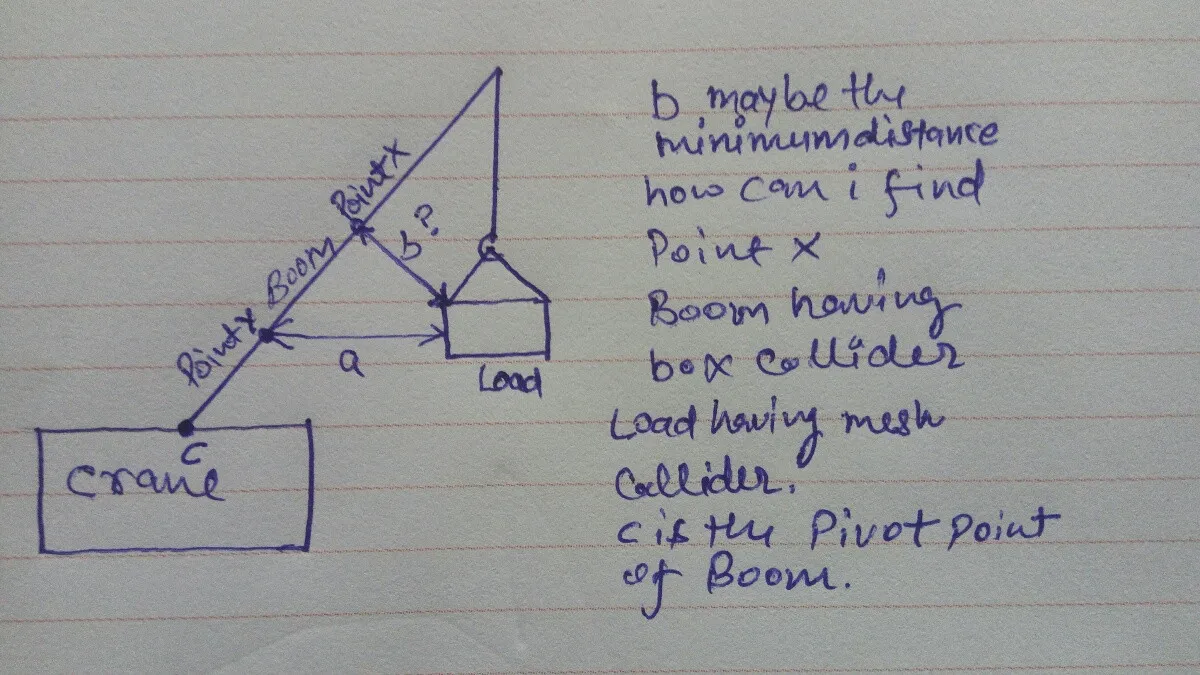 b maybe the
minimum distance
how can i find
Point X
Boom having
box collider
Load having mesh
Collider.
C is the Pivot point
of Boom.
Point X
b?
Boom
Point Y
a
Load
C
Crane